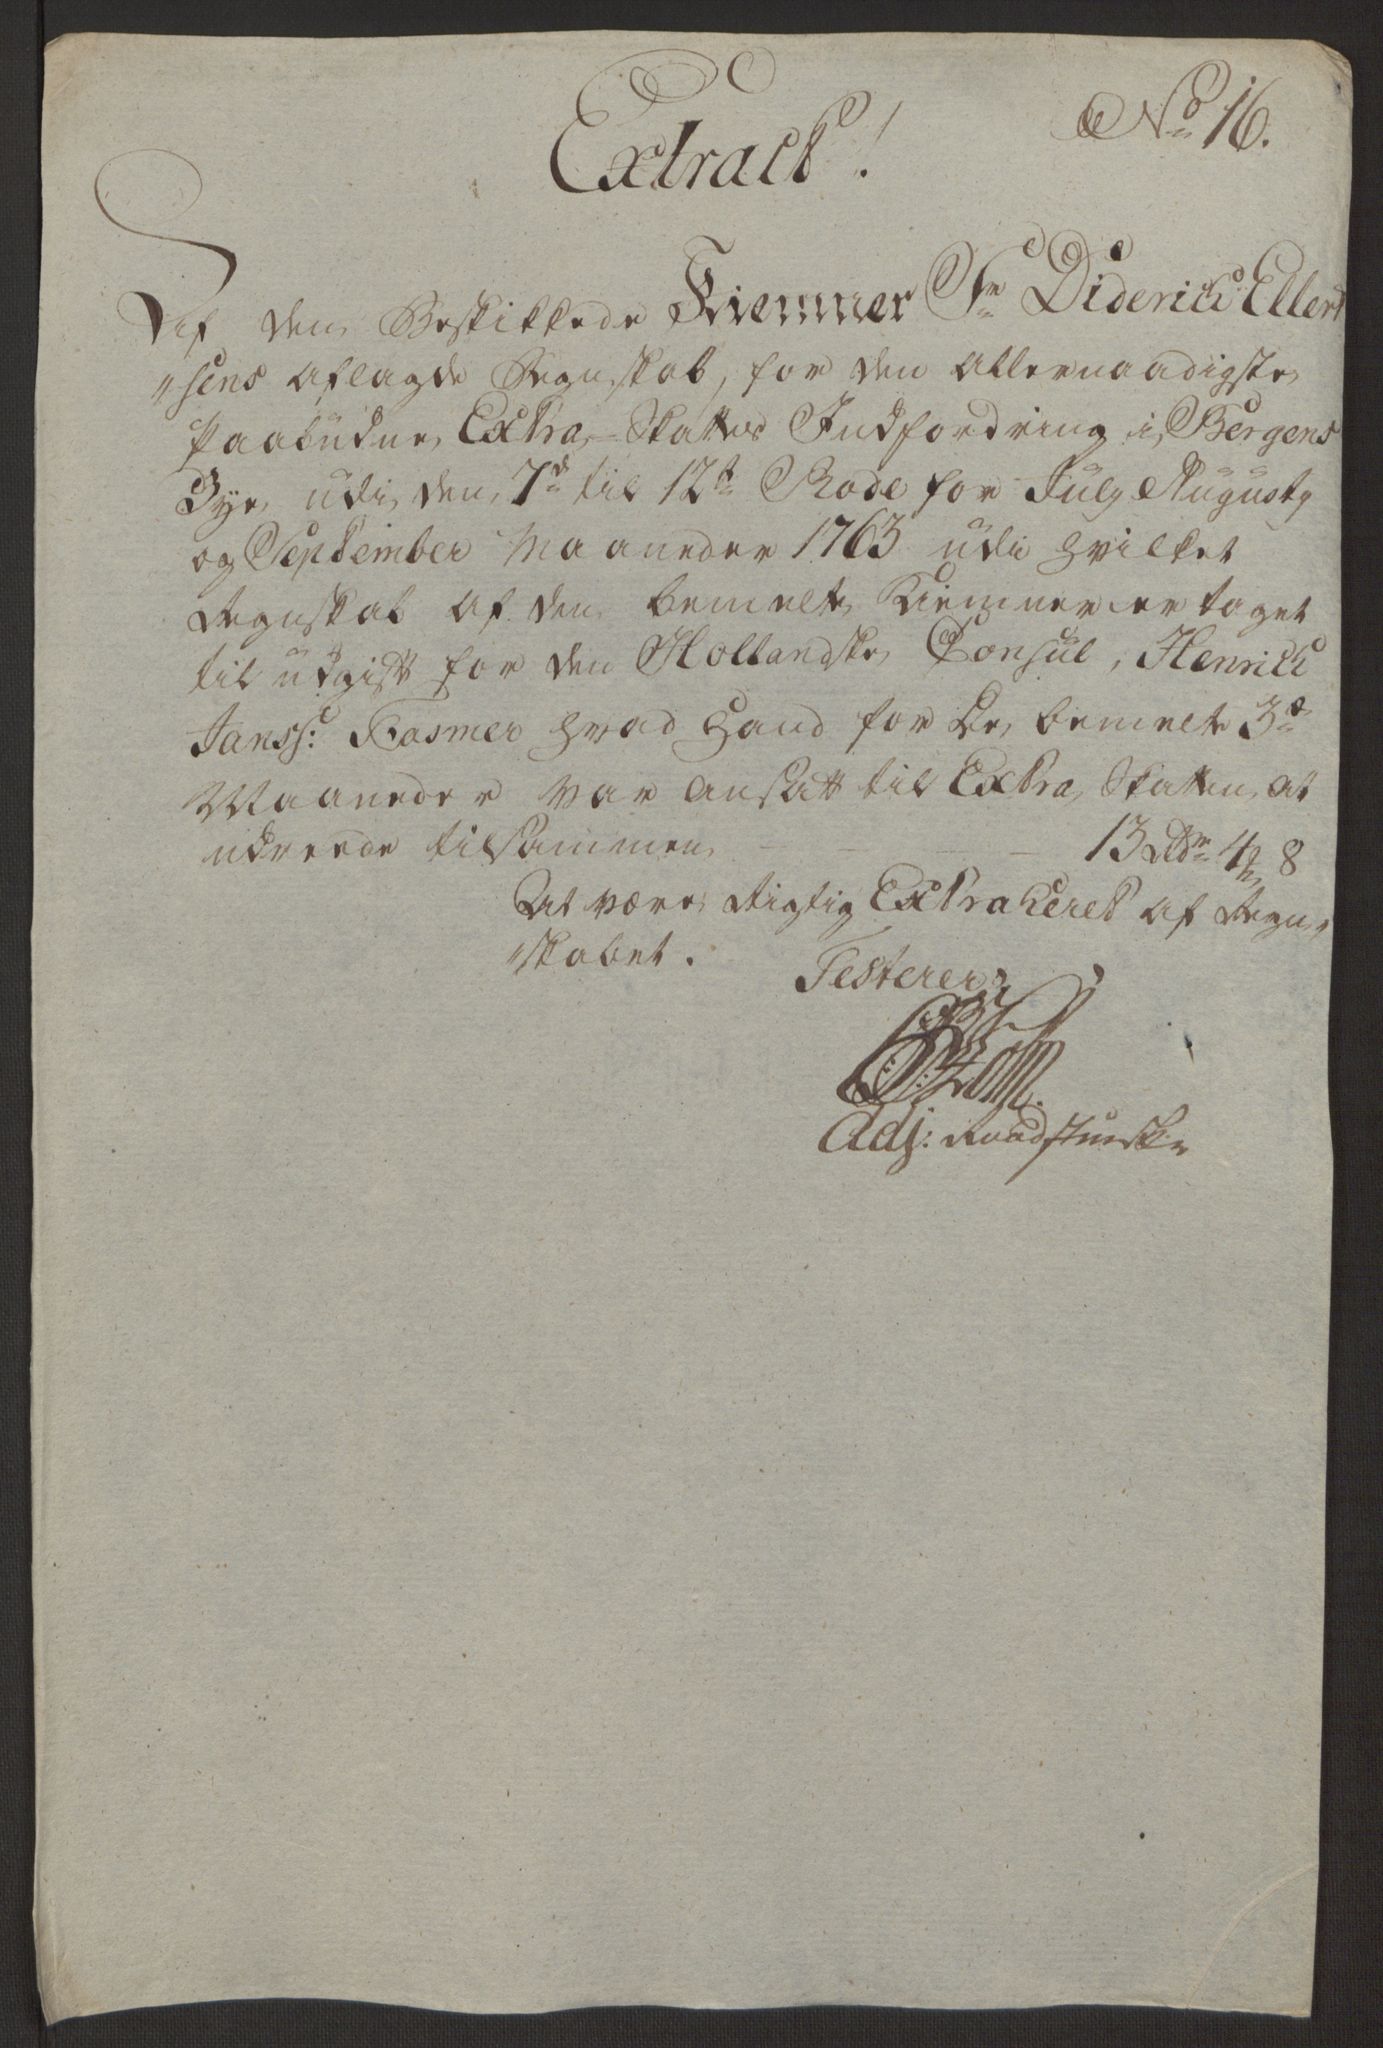 No 16.
Extract!
Af den Beskikkede Kiemner Sr Diderich Ellert
"sens aflagde Regnskab, for den allernaadigste
Paabudne Extra-Skattes Indfordring i Bergens
Bye, udi den 7de til 12te Rode for July Augusty
og September Maaneder 1763 udi hvilket
Regnskab af den bemelte Kiemner er taget
til udgift for den Hollandske Consul, Henrich
Janss: Fasmer hvad Hand for de bemelte 3de
Maaneder var ansatt til Extra Skatten at
udreede tilsammen — — — 13 Rdr 4 ₰ 8
At være Rigtig Extraheret af Regn"
"skabet.
Testerer
Adj: Raadstueskr